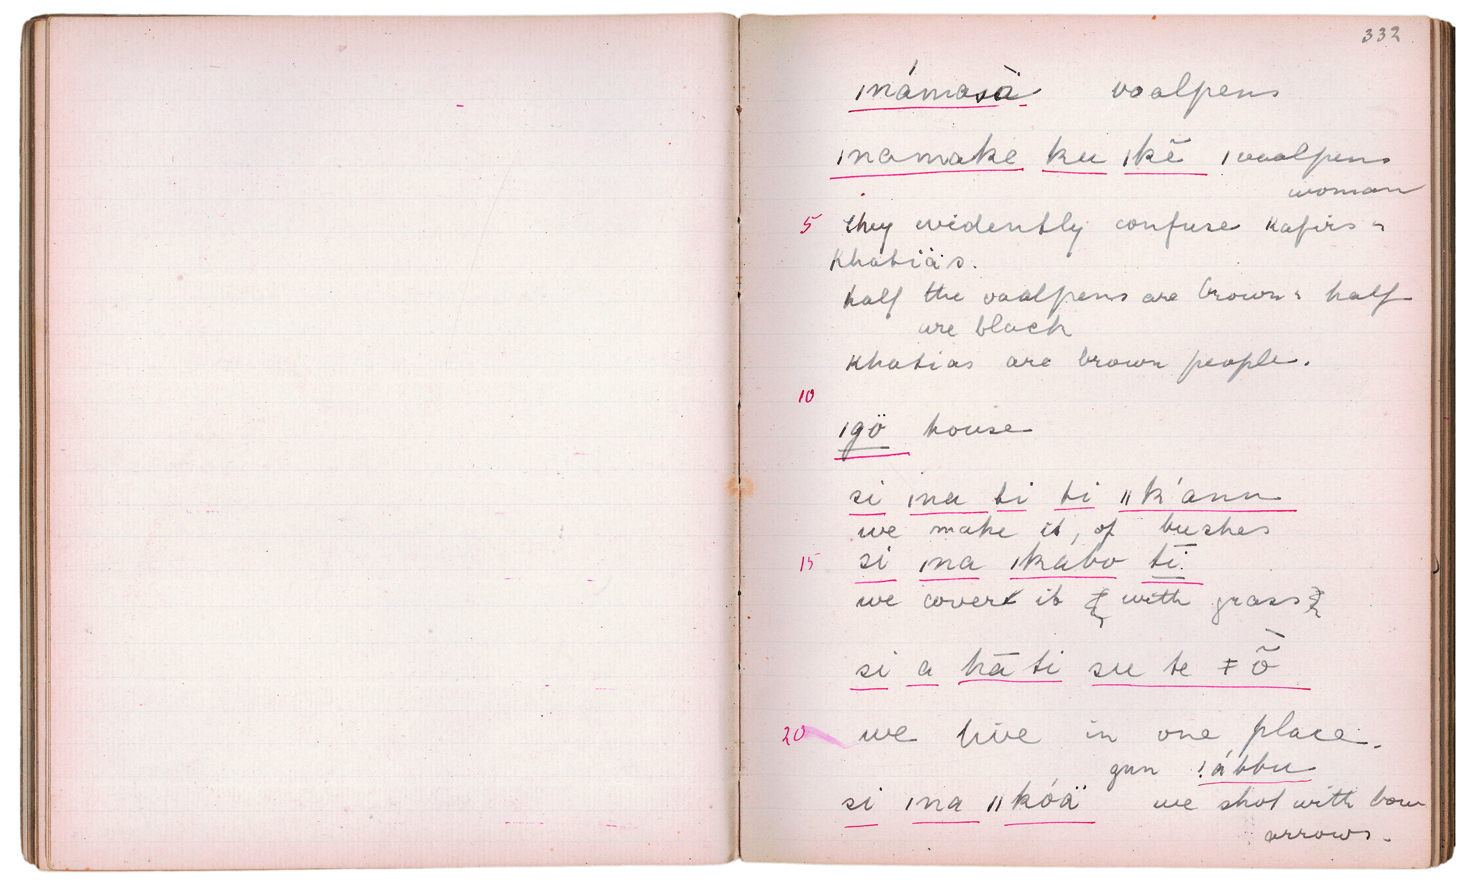 332
ınámasä voalpens
ınamake ku ıkẽ ı vaalpens
woman
5 they evidently confuse Kafirs &
Khatiäs.
half the vaalpens are brown & half
are black
Khatias are brown people.
10
ıgö house
si ına ti ti ǁk'ann
we make it, of bushes
15 si ına ıkabo tī
we cover it with grass
si a hā ti su te ǂ õ
20 we live in one place.
gun !ábbu
si ına ǁkóä we shot with bow
arrows.